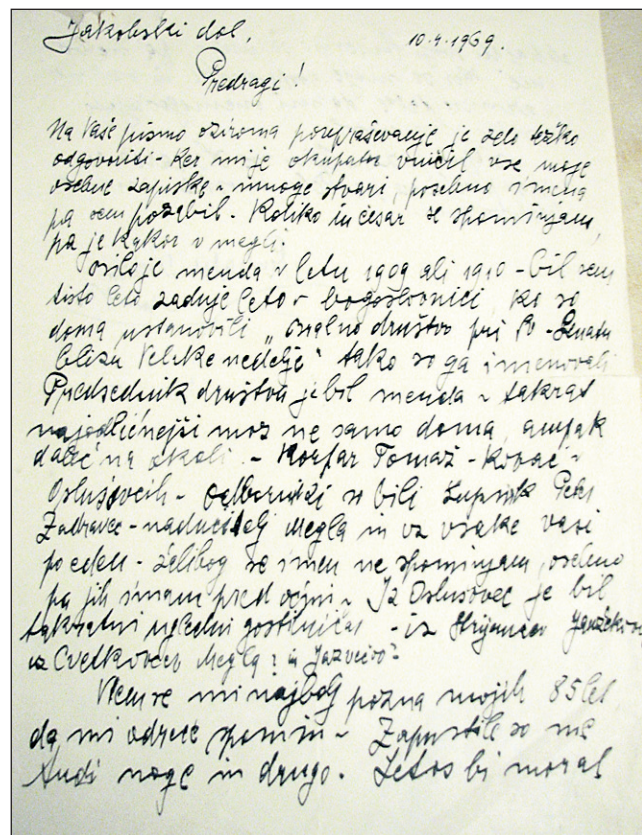 Jakobski dol, 10.4.1969.
Predragi!
Na Vaše pismo oziroma povpraševanje je zelo težko
odgovoriti - Ker mi je okupator vničil vse moje
osebne zapiske - mnoge stvari, posebno imena
pa sem pozabil. Koliko in česar se spominjam,
pa je kakor v megli.
bilo je menda v letu 1909 ali 1910 - bil sem
tisto leto zadnje leto v bogoslovnici, ko so
doma ustanovili „bralno društvo pri Sv. Lenartu
blizu Velike nedelje" tako so ga imenovali
Predsednik društva je bil menda v takrat
najodličnejši mož ne samo doma, ampak
daleč na okoli - Korpar Tomaž - Kovač v
Osluševcih - odborniki so bili Zupnik Peter
Zadravec - nadučitelj Megla in iz vsake vasi
po eden - žalibog se imen ne spominjam, osebno
pa jih imam pred očmi - Iz Osluševec je bil
takratni ugledni gostilničar - iz
iz Cvetkovec Megla? in
Vem se mi najbolj pozna mojih 85 let,
da mi odreče spomin - Zapustile so me
tudi noge in drugo. Letos bi moral